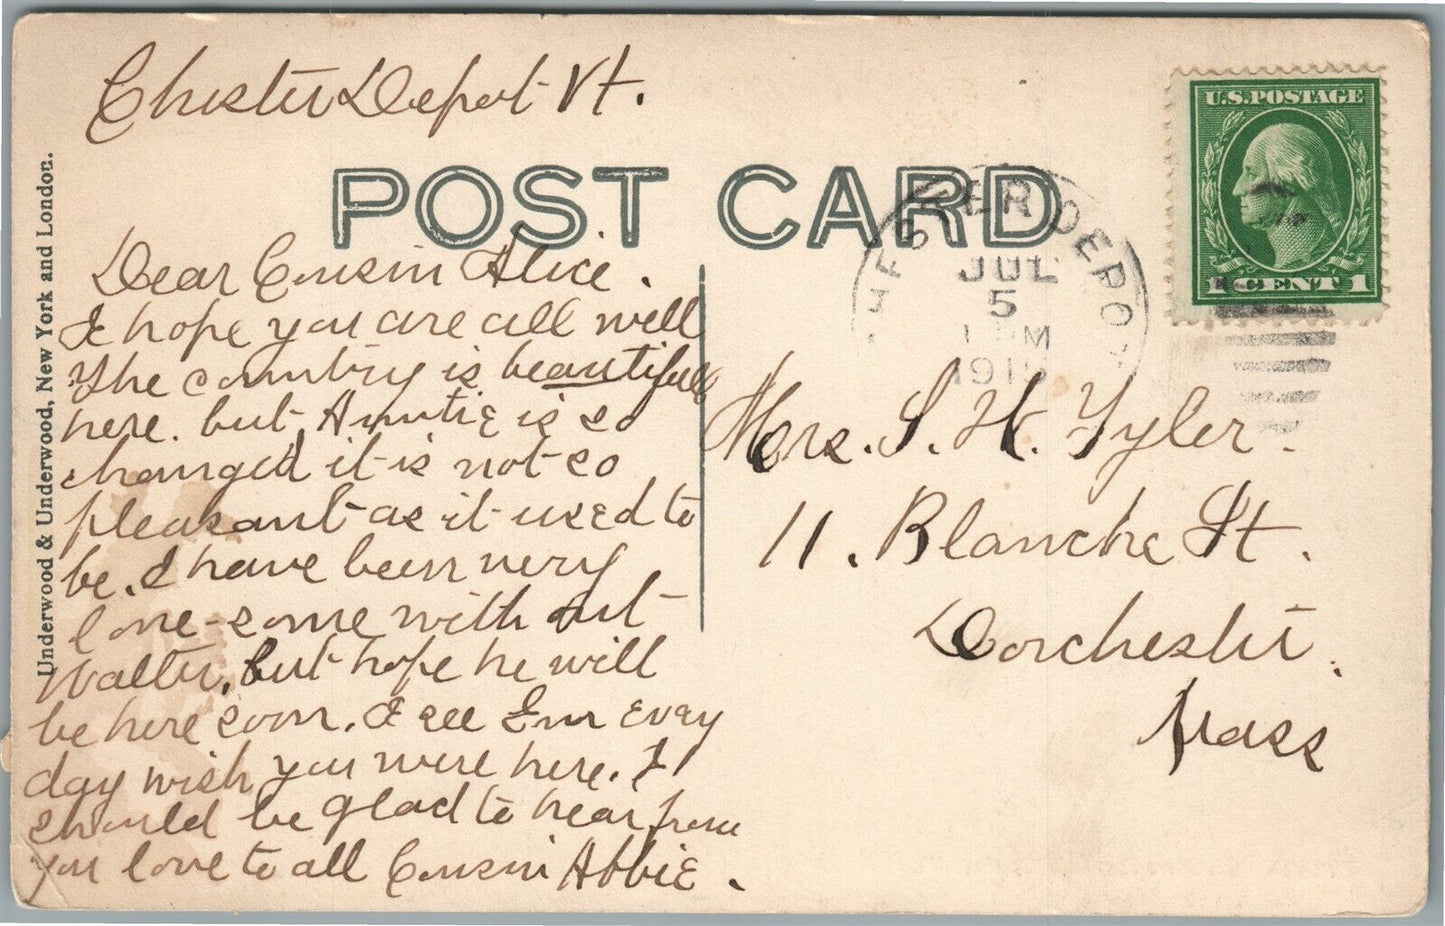 Chester Depot Vt.
POST CARD
Underwood & Underwood, New York and London.
U.S.POSTAGE
1 CENT 1
CHESTER DEPOT
JUL
5
M
191
Dear Cousin Alice.
I hope you are all well
The country is beautifull
here. but Auntie is so
changed it is not so
pleasant as it used to
be. I have been very
lone-some with out
Walter, but hope he will
be here soon. I see Em every
day wish you were here. I
should be glad to hear from
you love to all Cousin Abbie.
Mrs. S. H. Tyler.
11. Blanche St.
Dorchester.
Mass